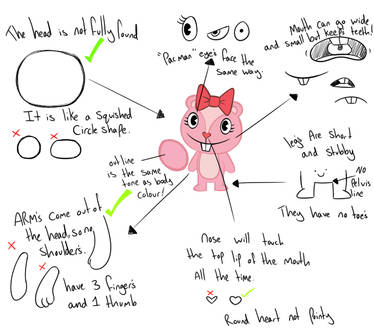 The head is not fully round
It is like a Squished
Circle shape.
"Pacman" eye's face the
same way.
Mouth can go wide
and small but keeps teeth!
outline
is the same
tone as body
colour!
legs Are short
and stubby
NO
Pelvis
line
They have no toe's
ARMs come out of
the head, so no
shoulders.
have 3 fingers
and 1 thumb
Nose will touch
the top lip of the mouth
All the time.
Round heart not Pointy